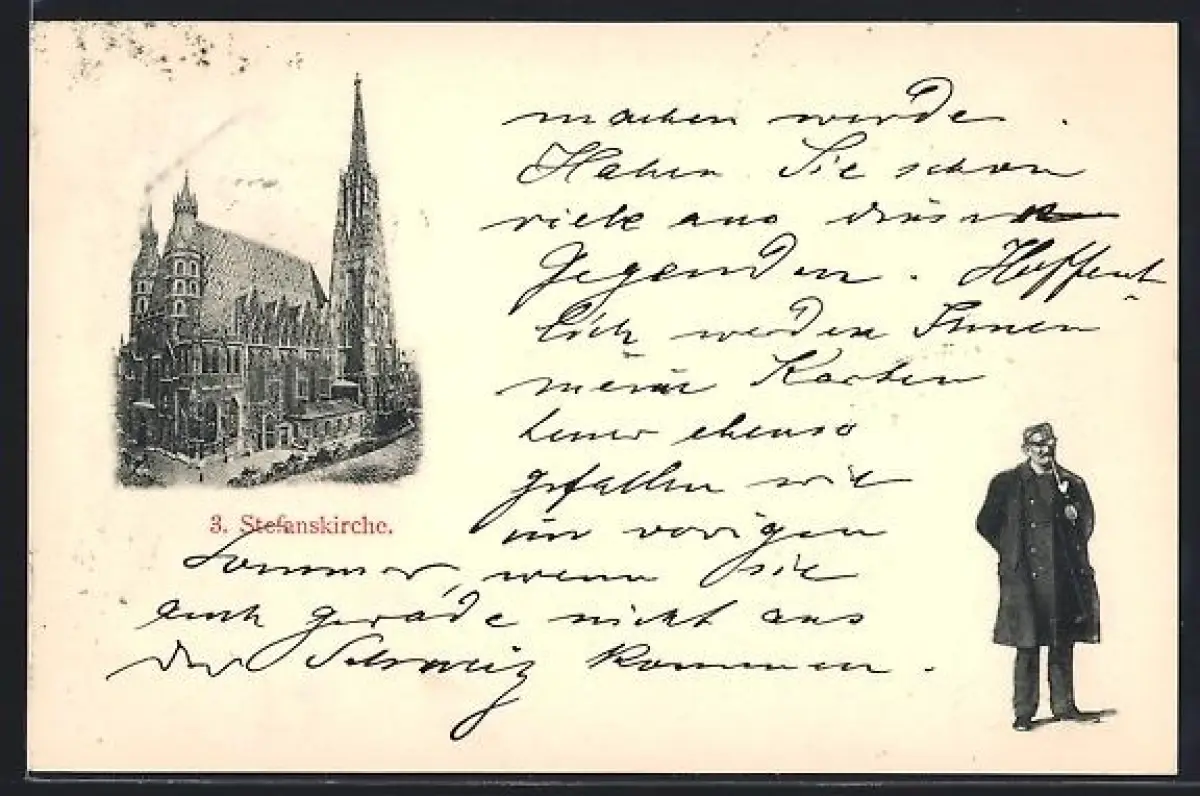 machen werde.
Haben Sie schon
viele aus diesen
Gegenden. Hoffent-
lich werden Ihnen
meine Karten
heuer ebenso
gefallen wie
im vorigen
3. Stefanskirche.
Sommer, wenn sie
auch gerade nicht aus
der Schweiz kommen.